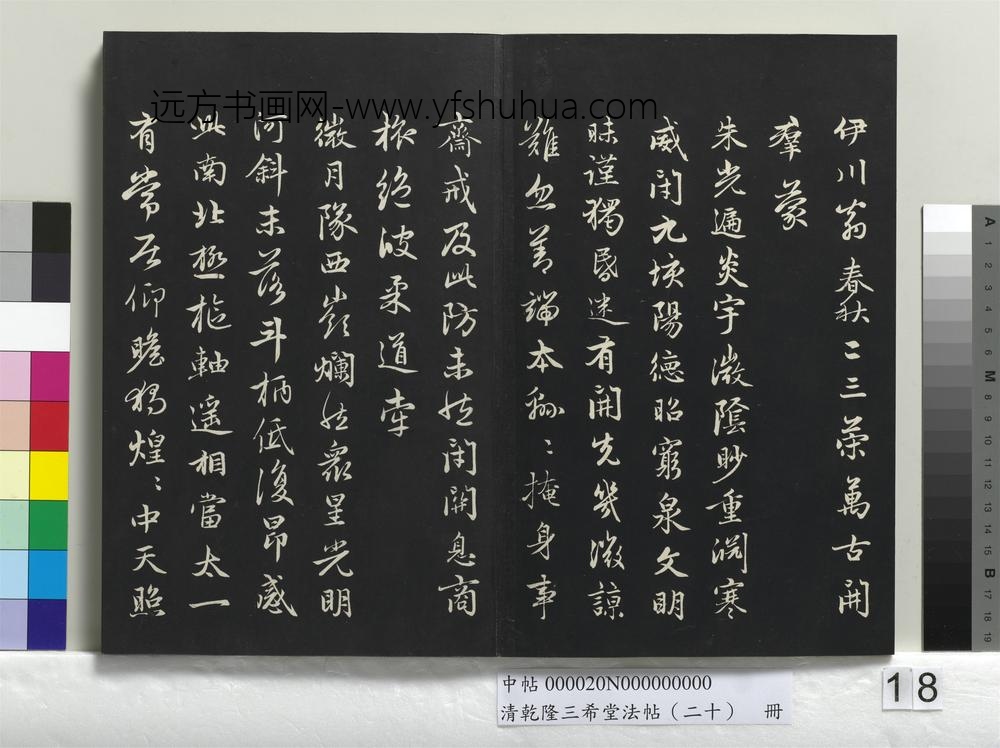 远方书画网-www.yfshuhua.com
伊川翁春秋二三策萬古開
羣蒙
朱光遍炎宇微陰眇重淵寒
威閉九垓陽德昭窮泉文明
昧謹獨昏迷有開先幾微諒
難忽善端本緜〻掩身事
齋戒及此防未然閉關息商
旅絕彼柔道牽
微月隊西嶺爛然衆星光明
河斜未落斗柄低復昂感
此南北極樞軸遥相當太一
有常居仰瞻獨煌〻中天照
中帖 000020N000000000
清乾隆三希堂法帖（二十） 冊
18
A 1 2 3 4 5 6 M 8 9 10 11 12 13 14 15 B 17 18 19